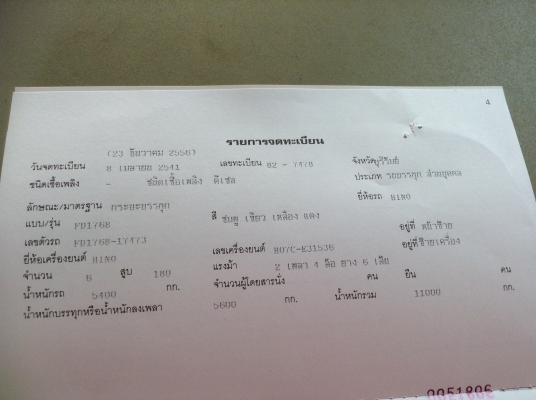 4
รายการจดทะเบียน
(23 ธันวาคม 2556)
วันจดทะเบียน 8 เมษายน 2541 เลขทะเบียน 82 - 7478 จังหวัดบุรีรัมย์
ชนิดเชื้อเพลิง - ชนิดเชื้อเพลิง ดีเซล ประเภท รถบรรทุก ส่วนบุคคล
ลักษณะ/มาตรฐาน กระบะบรรทุก ยี่ห้อรถ HINO
แบบ/รุ่น FD176B สี ชมพู เขียว เหลือง แดง
เลขตัวรถ FD176B-17473 อยู่ที่ หน้าซ้าย
ยี่ห้อเครื่องยนต์ HINO เลขเครื่องยนต์ H07C-E31536 อยู่ที่ ซ้ายเครื่อง
จำนวน 6 สูบ 180 แรงม้า 2 เพลา 4 ล้อ ยาง 6 เส้น
น้ำหนักรถ 5400 กก. จำนวนผู้โดยสารนั่ง คน ยืน คน
น้ำหนักบรรทุกหรือน้ำหนักลงเพลา 5600 กก. น้ำหนักรวม 11000 กก.